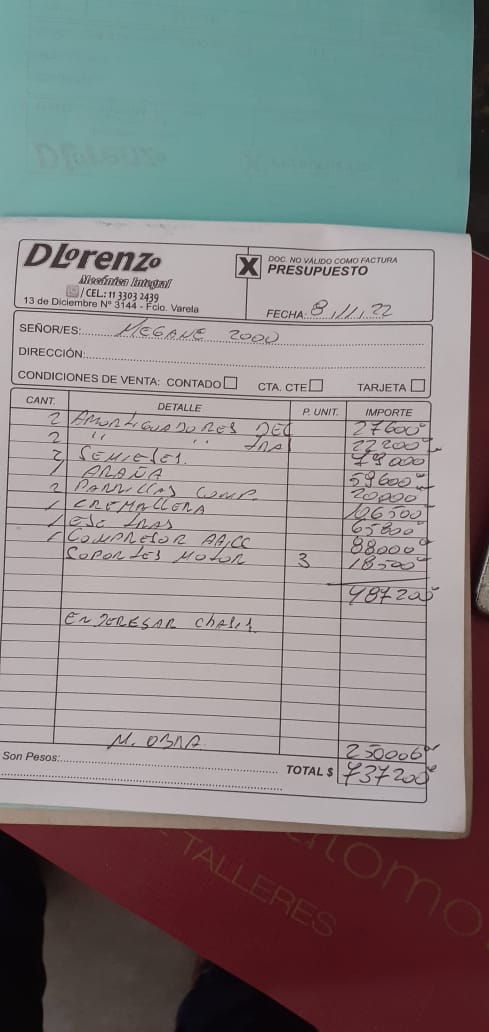 DLorenzo
Mecánica Integral
/ CEL.: 11 3303 2439
13 de Diciembre Nº 3144 - Fcio. Varela
X
DOC. NO VÁLIDO COMO FACTURA
PRESUPUESTO
FECHA: 8/11/22
SEÑOR/ES: MEGANE 2000
DIRECCIÓN:
CONDICIONES DE VENTA: CONTADO CTA. CTE TARJETA
CANT. DETALLE P. UNIT. IMPORTE
2 AMORTIGUADORES DEL 27600
2 " " TRA 22200
2 SEMIEJES. 79000
1 ARAÑA 59600
2 PARRILLAS COMP. 20000
1 CREMALLERA 106500
1 EJE TRAS 65800
1 COMPRESOR AA/CC 88000
SOPORTES MOTOR 3 18500
487200
ENDERESAR CHASIS
M. OBRA 250000
Son Pesos:
TOTAL $ 737200
TALLERES